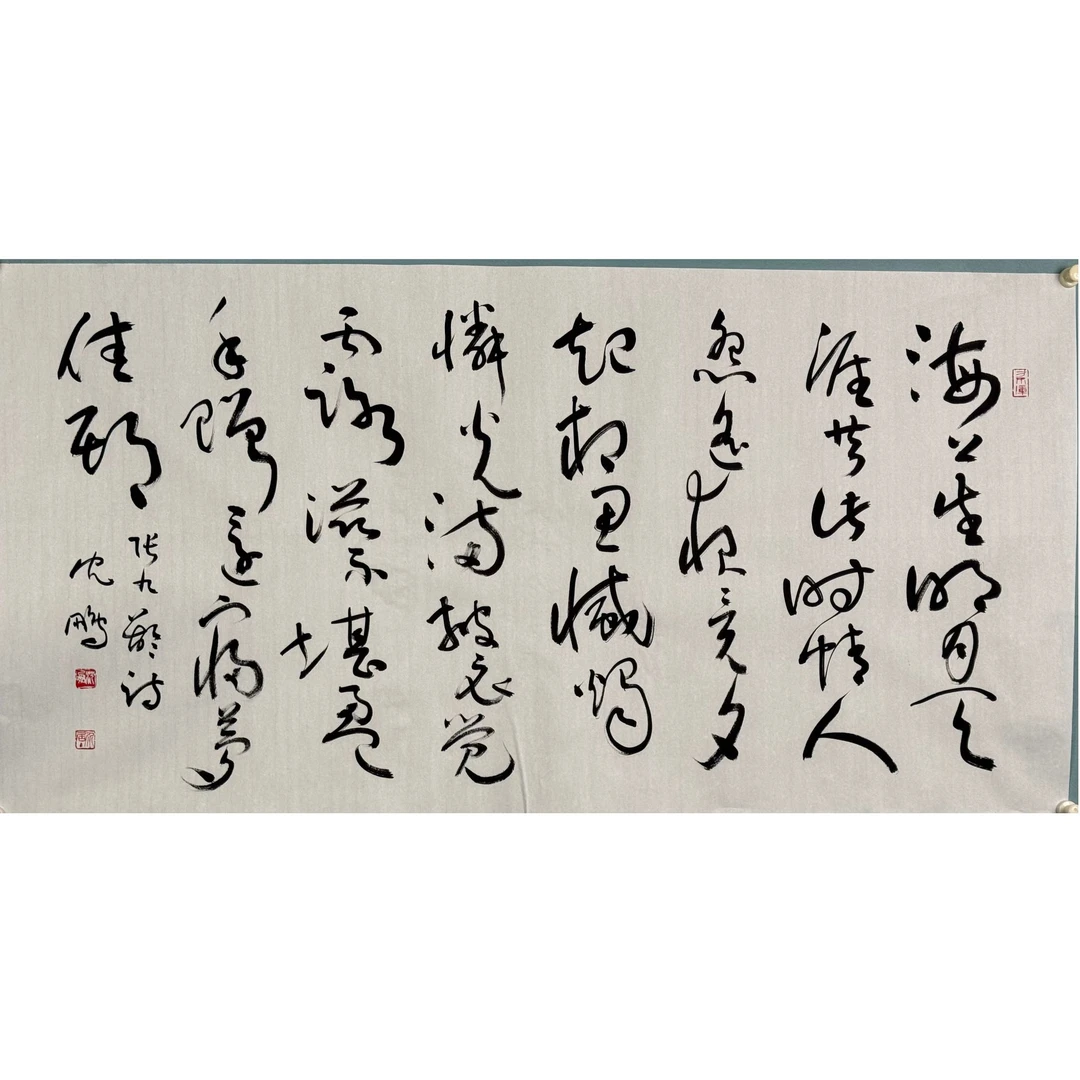 海上生明月天
涯共此时情人
怨遥夜竟夕
起相思滅燭
憐光满披衣觉
露滋不堪盈
手赠還寝梦
佳期
张九龄诗
沈鹏